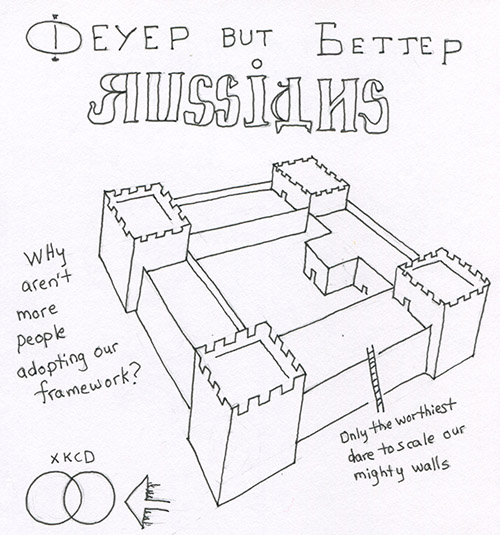 ФЕУЕР BUT БЕТТЕР
ЯUSSIДИS
Why
aren't
more
people
adopting our
framework?
Only the worthiest
dare to scale our
mighty walls
XKCD